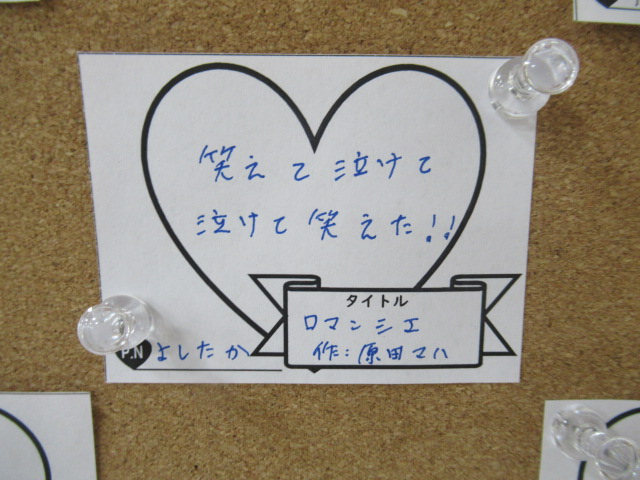 笑えて泣けて
泣けて笑えた!!
タイトル
ロマンシエ
作:原田マハ
P.N よしたか